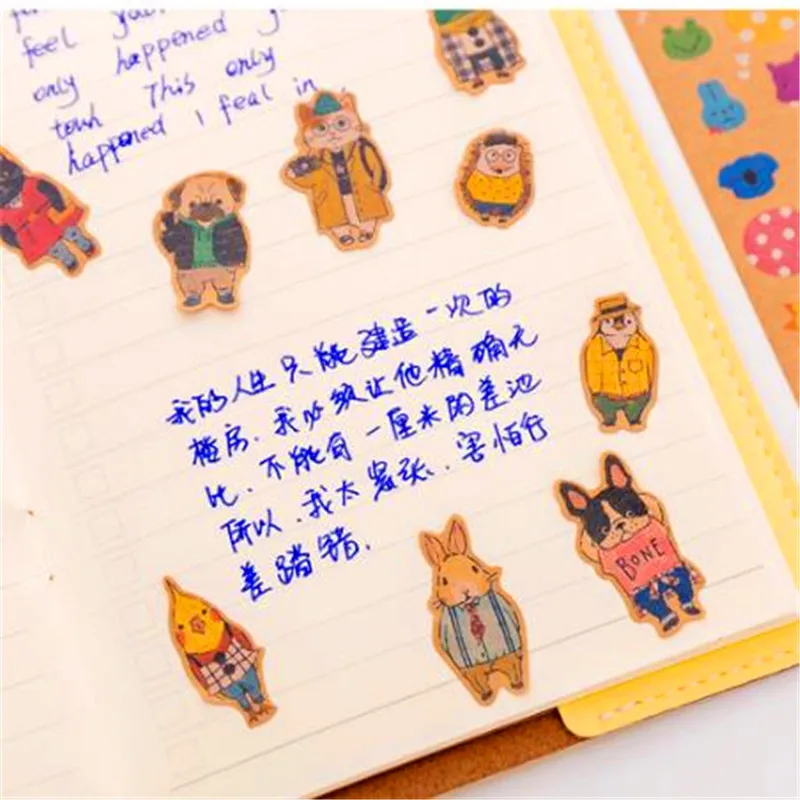 feel you
only happened
town This only
happened I feal in
我的人生只能建造一次的
楼房.我必须让他精确无
比.不能有一厘米的差池
所以.我太紧张.害怕行
差踏错.
BONE